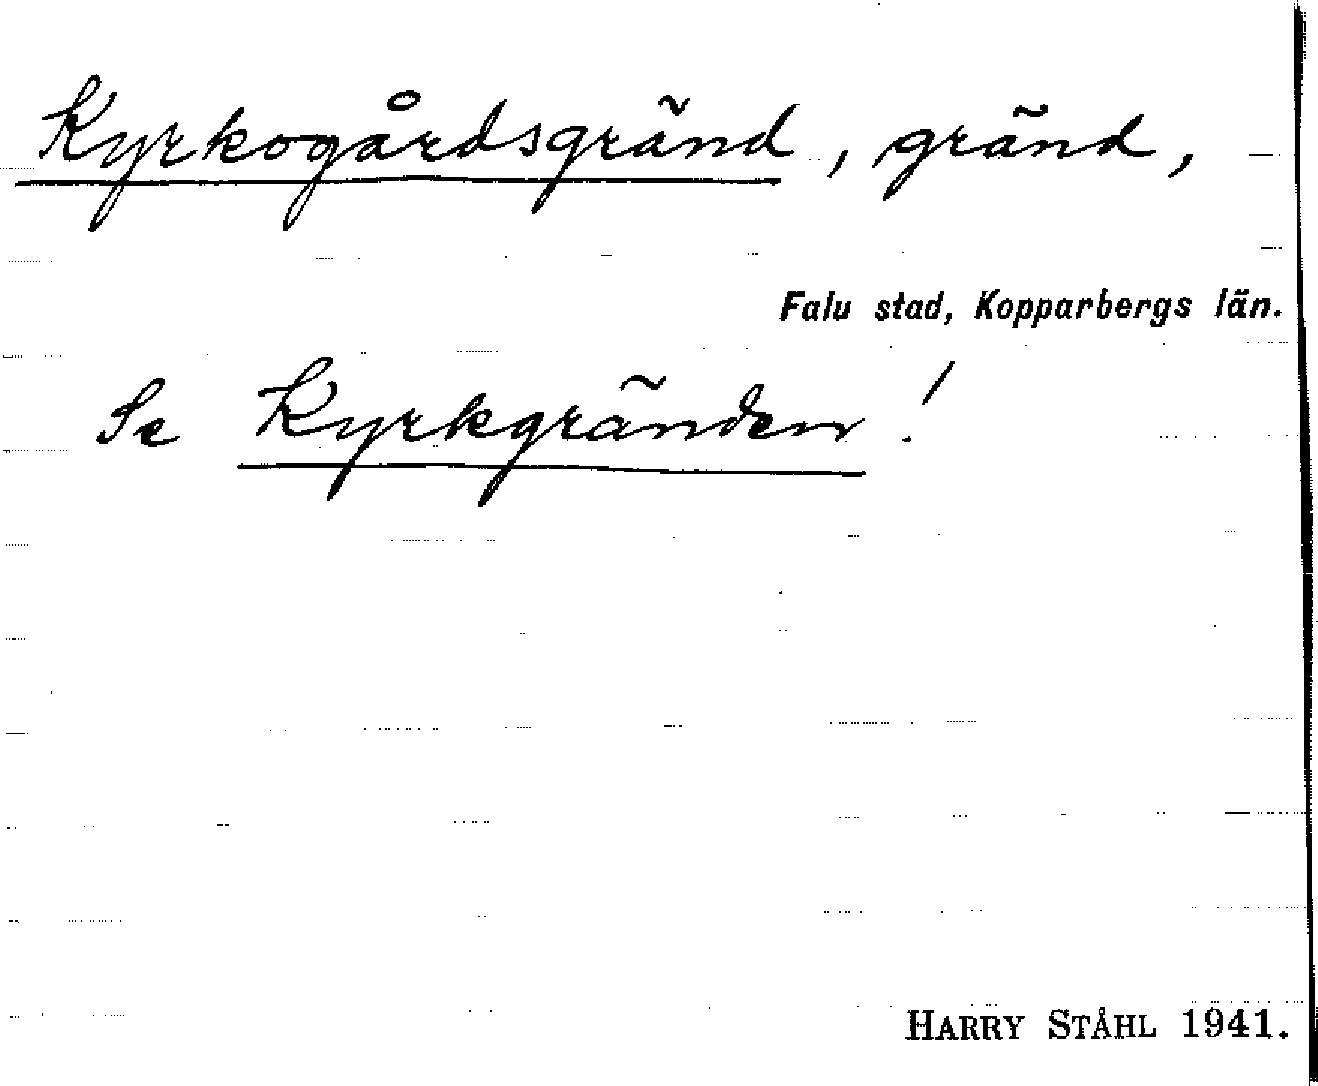 Kyrkogårdsgränd, gränd,
Falu stad, Kopparbergs län.
Se Kyrkgränden!
HARRY STÅHL 1941.